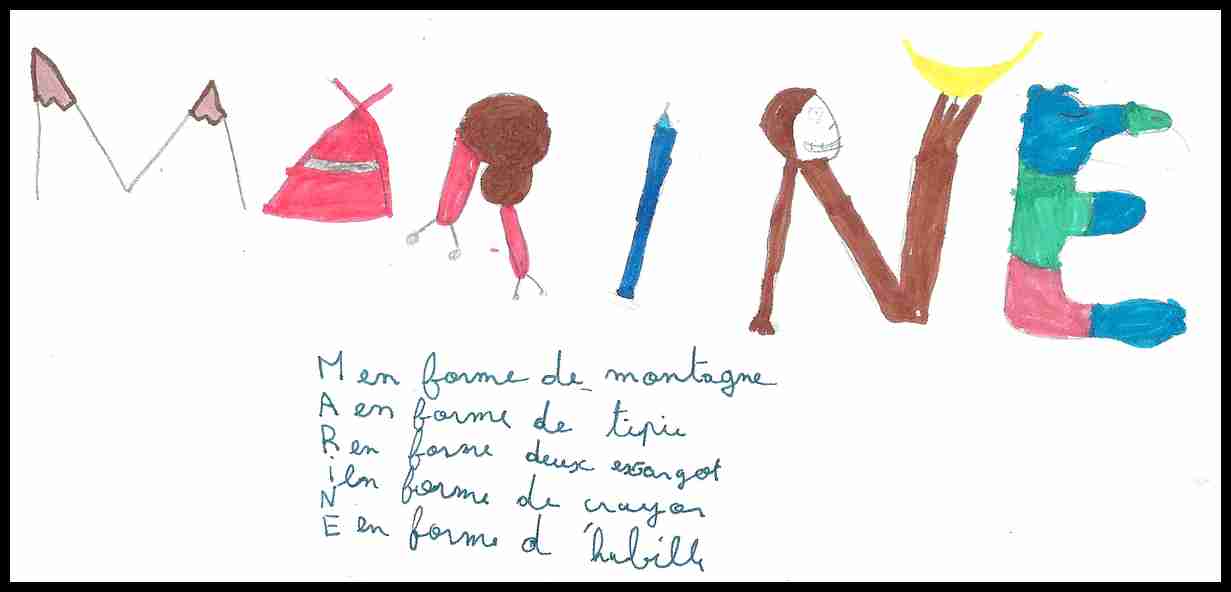 MARINE
M en forme de montagne
A en forme de tipie
R en forme deux escargot
i en forme de crayon
N
E en forme d'habille